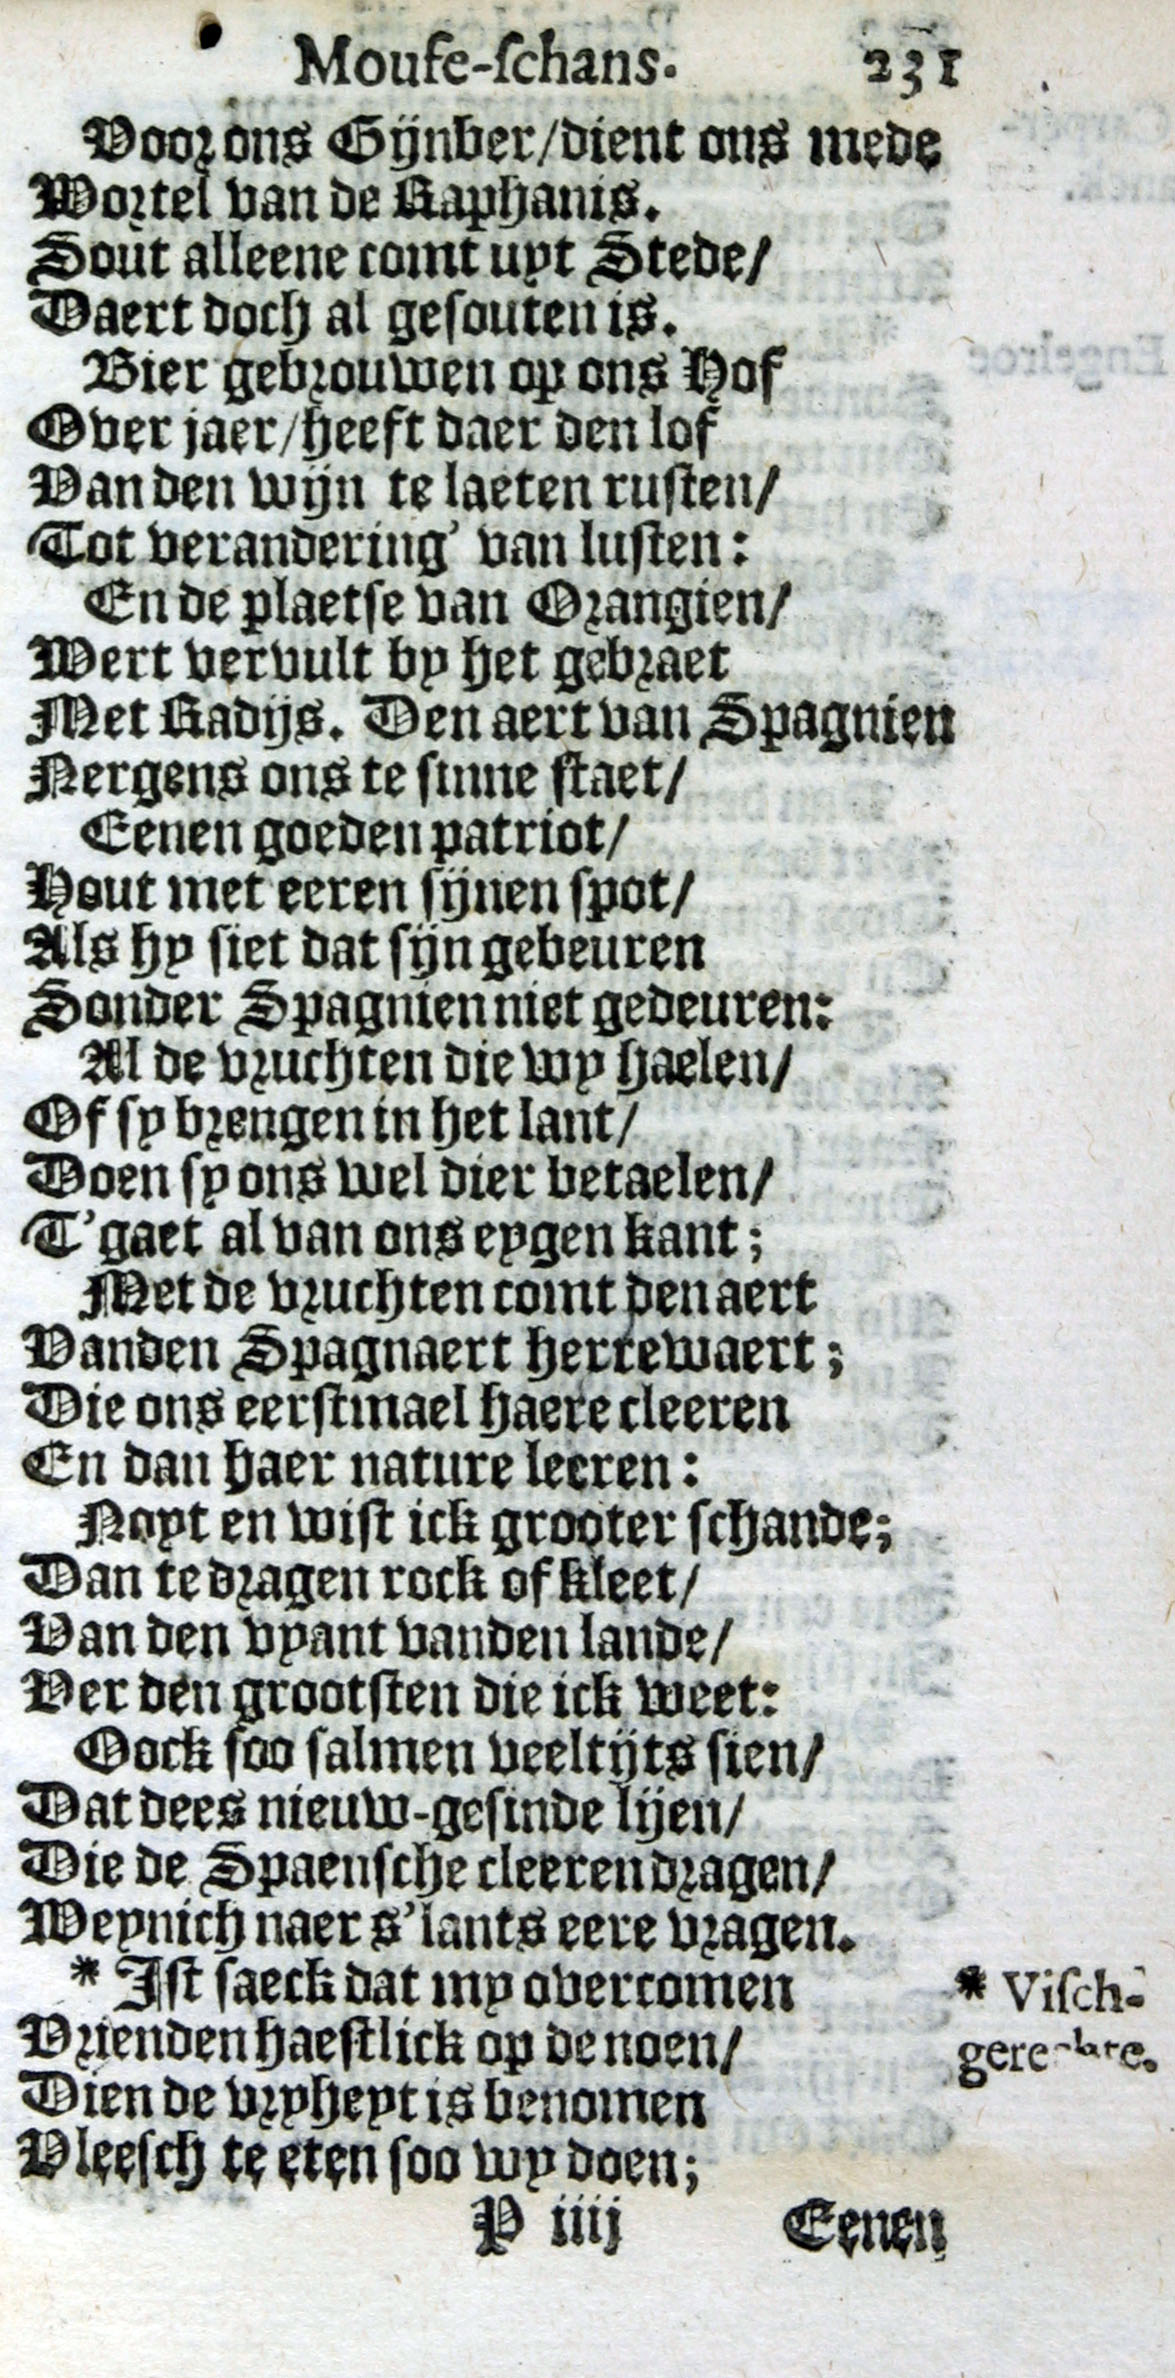 Moufe-ſchans. 231
Voor ons Gijnber/dient ons mede
Wortel van de Raphanis.
Sout alleene comt uyt Stede/
Daert doch al geſouten is.
Bier gebrouwen op ons Hof
Over jaer/heeft daer den lof
Van den wijn te laeten ruſten/
Tot verandering' van luſten:
En de plaetſe van Orangien/
Wert vervult by het gebraet
Met Radijs. Den aert van Spagnien
Nergens ons te ſinne ſtaet/
Eenen goeden patriot/
Hout met eeren ſijnen ſpot/
Als hy ſiet dat ſijn gebeuren
Sonder Spagnien niet gedeuren:
Al de vruchten die wy haelen/
Of ſy brengen in het lant/
Doen ſy ons wel dier betaelen/
T'gaet al van ons eygen kant;
Met de vruchten comt den aert
Vanden Spagnaert herrewaert;
Die ons eerſtmael haere cleeren
En dan haer nature leeren:
Noyt en wiſt ick grooter ſchande;
Dan te dragen rock of kleet/
Van den vyant vanden lande/
Ver den grootſten die ick weet:
Oock ſoo ſalmen veeltijts ſien/
Dat dees nieuw-geſinde lijen/
Die de Spaenſche cleeren dragen/
Weynich naer s'lants eere vragen.
* Iſt ſaeck dat my overcomen
Vrienden haeſtlick op de noen/
Dien de vryheyt is benomen
Vleeſch te eten ſoo wy doen;
* Viſch-
P iiij Eenen